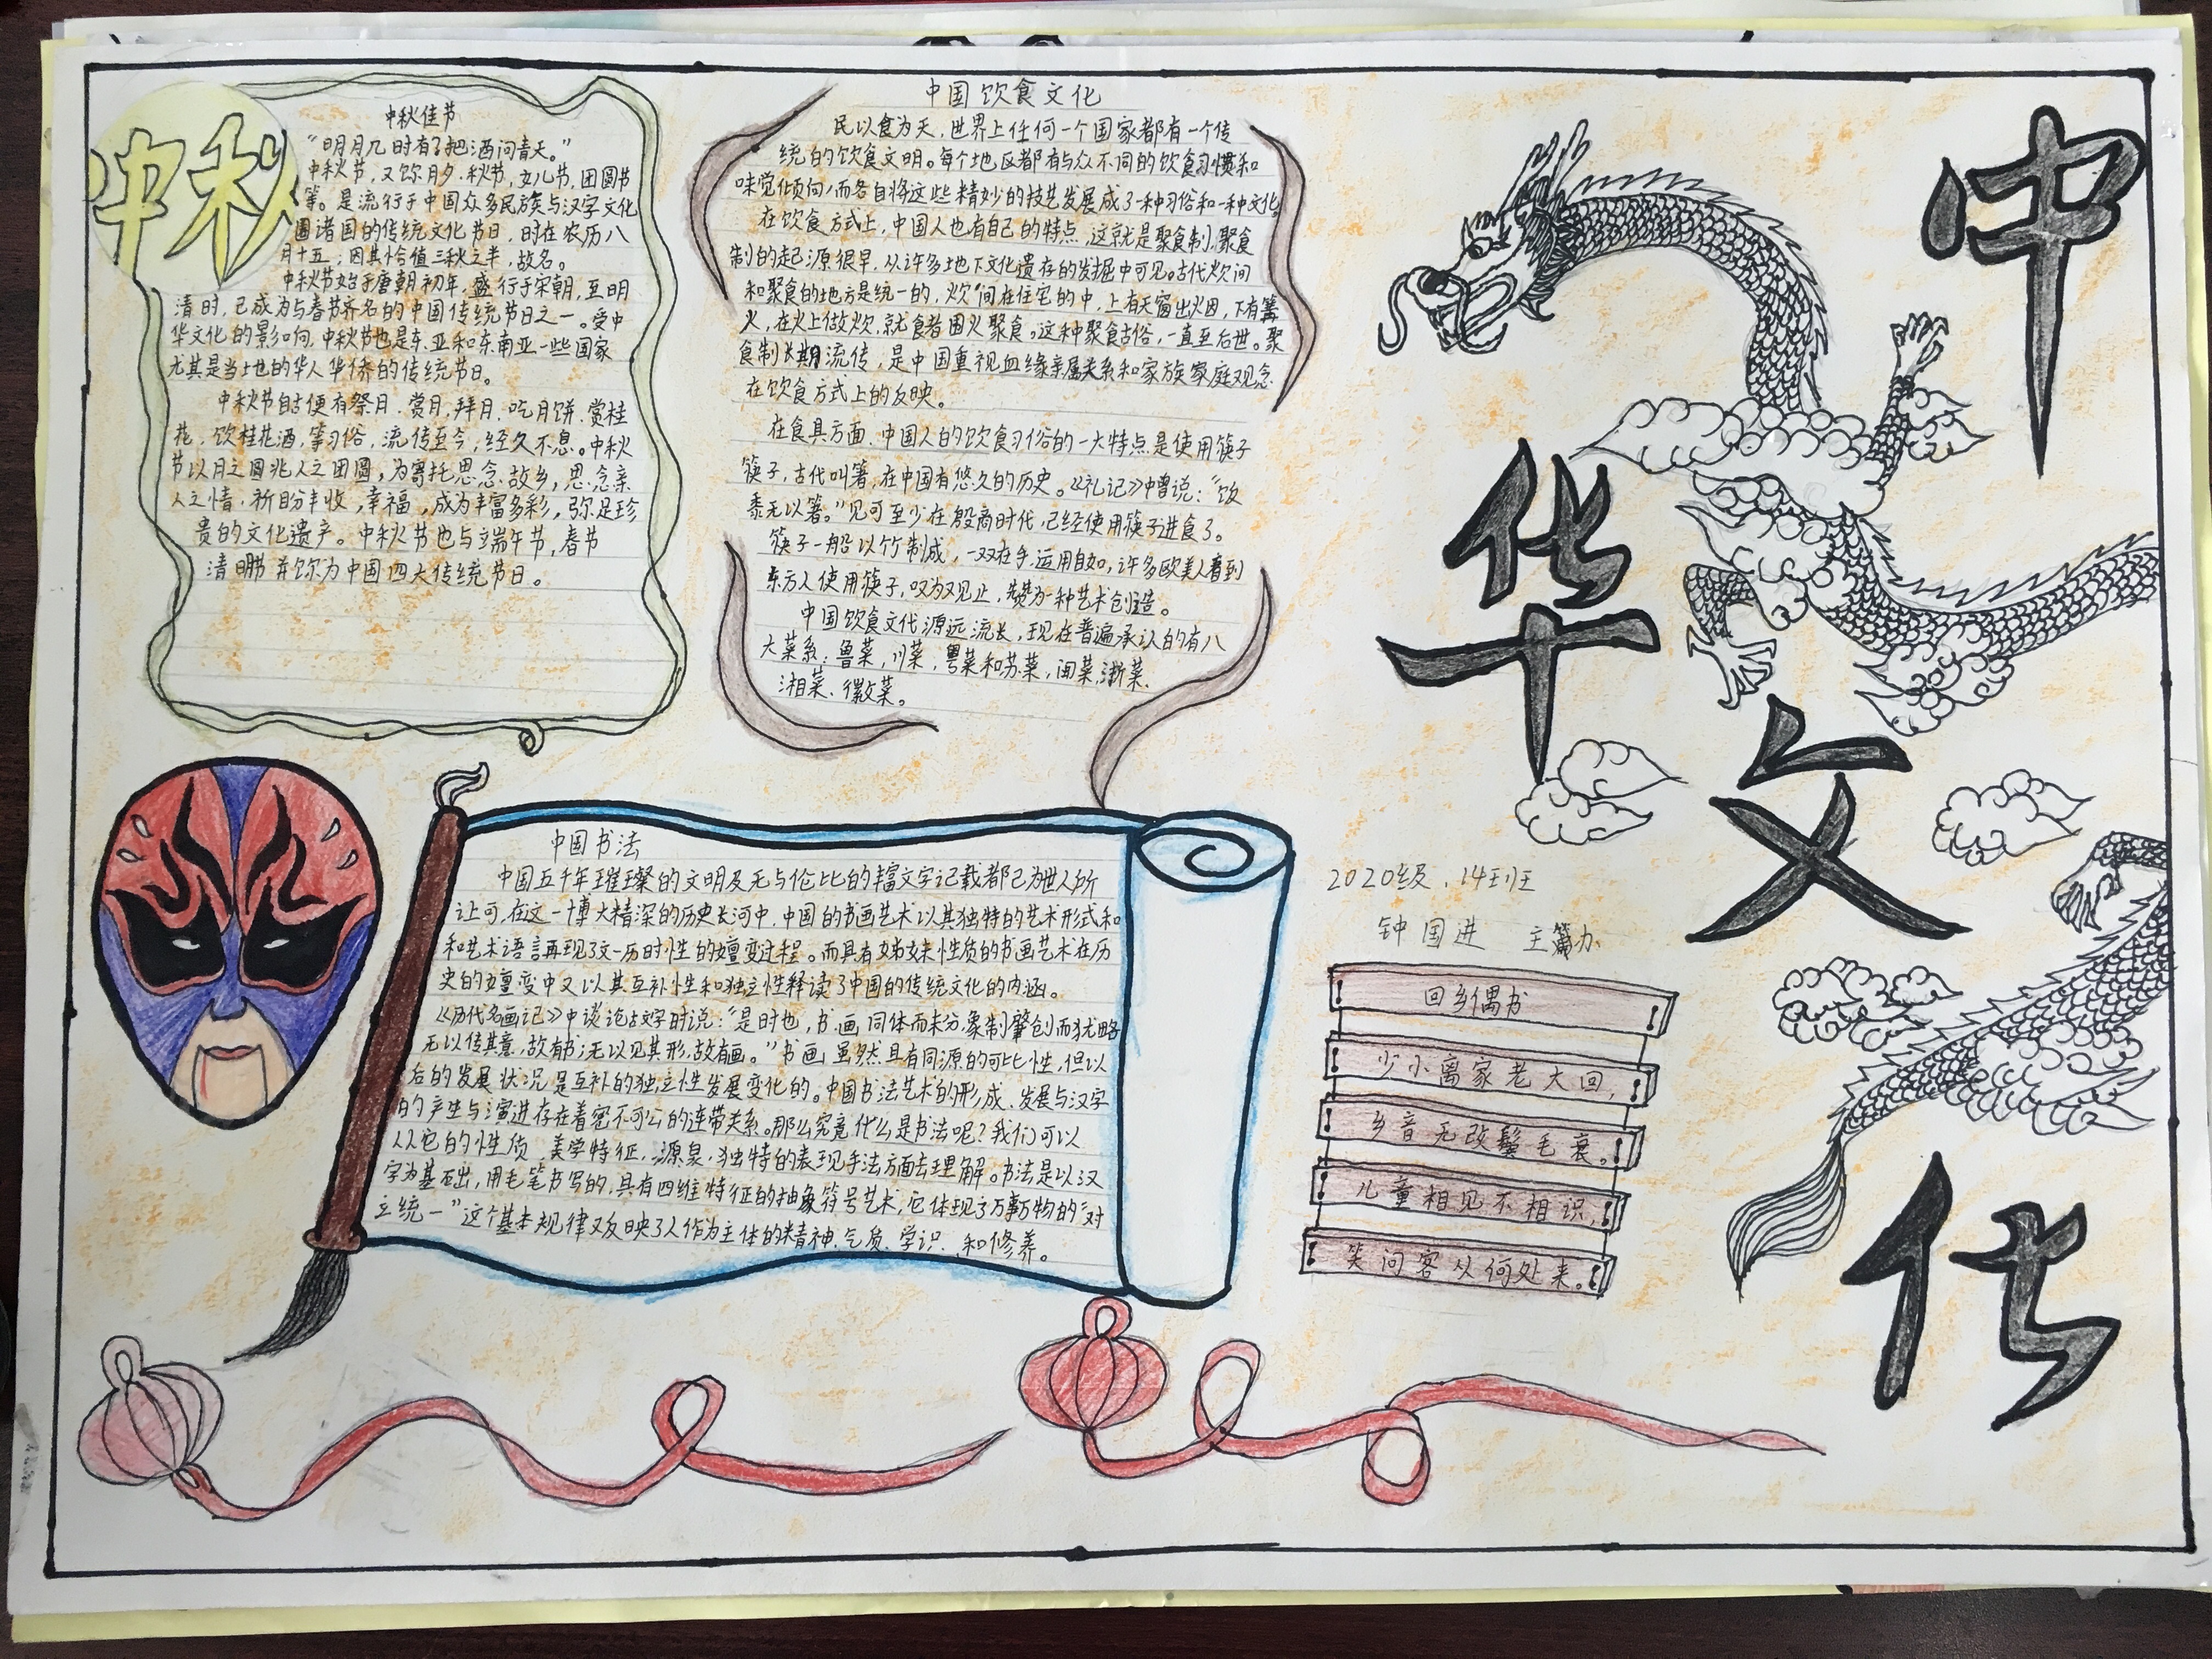 中秋
中秋佳节
“明月几时有？把酒问青天。”
中秋节，又称月夕、秋节、女儿节，团圆节
等。是流行于中国众多民族与汉字文化
圈诸国的传统文化节日，时在农历八
月十五；因其恰值三秋之半，故名。
中秋节始于唐朝初年，盛行于宋朝，至明
清时，已成为与春节齐名的中国传统节日之一。受中
华文化的影响，中秋节也是东亚和东南亚一些国家
尤其是当地的华人华侨的传统节日。
中秋节自古便有祭月、赏月，拜月、吃月饼、赏桂
花，饮桂花酒，等习俗，流传至今，经久不息。中秋
节以月之圆兆人之团圆，为寄托思念故乡，思念亲
人之情，祈盼丰收，幸福，成为丰富多彩，弥足珍
贵的文化遗产。中秋节也与端午节，春节
清明节并称为中国四大传统节日。
中国饮食文化
民以食为天，世界上任何一个国家都有一个传
统的饮食文明。每个地区都有与众不同的饮食习惯和
味觉倾向，而各自将这些精妙的技艺发展成了一种习俗和一种文化。
在饮食方式上，中国人也有自己的特点，这就是聚食制，聚食
制的起源很早，从许多地下文化遗存的发掘中可见。古代炊间
和聚食的地方是统一的，炊间在住宅的中，上有天窗出火囱，下有篝
火，在火上做炊，就食者围火聚食。这种聚食古俗，一直至后世。聚
食制长期流传，是中国重视血缘亲属关系和家族家庭观念
在饮食方式上的反映。
在食具方面，中国人的饮食习俗的一大特点是使用筷子
筷子，古代叫箸，在中国有悠久的历史。《礼记》中曾说：“饮
黍无以箸。”见可至少在殷商时代，已经使用筷子进食了。
筷子一船以竹制成，一双在手，运用自如，许多欧美人看到
东方人使用筷子，叹为观止，赞为一种艺术创造。
中国饮食文代源远流长，现在普遍承认的有八
大菜系：鲁菜，川菜，粤菜和苏菜，闽菜，浙菜、
湘菜、徽菜。
中国书法
中国五千年璀璨的文明及无与伦比的丰富文字记载都已为世人所
认可，在这一博大精深的历史长河中，中国的书画艺术以其独特的艺术形式和
和艺术语言再现了这一历时性的嬗变过程。而具有姊妹性质的书画艺术在历
史的嬗变中又以其互补性和独立性释读了中国的传统文化的内涵。
《历代名画记》中谈论古文字时说：“是时也，书画同体而未分，象制肇创而犹略
无以传其意，故有书；无以见其形，故有画。”书画虽然具有同源的可比性，但以
后的发展状况是互补的独立性发展变化的。中国书法艺术的形成、发展与汉字
的产生与演进存在着密不可分的连带关系。那么究竟什么是书法呢？我们可以
从它的性质、美学特征，源泉，独特的表现手法方面去理解。书法是以汉
字为基础，用毛笔书写的，具有四维特征的抽象符号艺术，它体现了万事万物的“对
立统一”这个基本规律又反映了人作为主体的精神、气质、学识、和修养。
中
华
文
化
2020级、14班
钟国进 主办
回乡偶书
少小离家老大回，
乡音无改鬓毛衰。
儿童相见不相识，
笑问客从何处来。